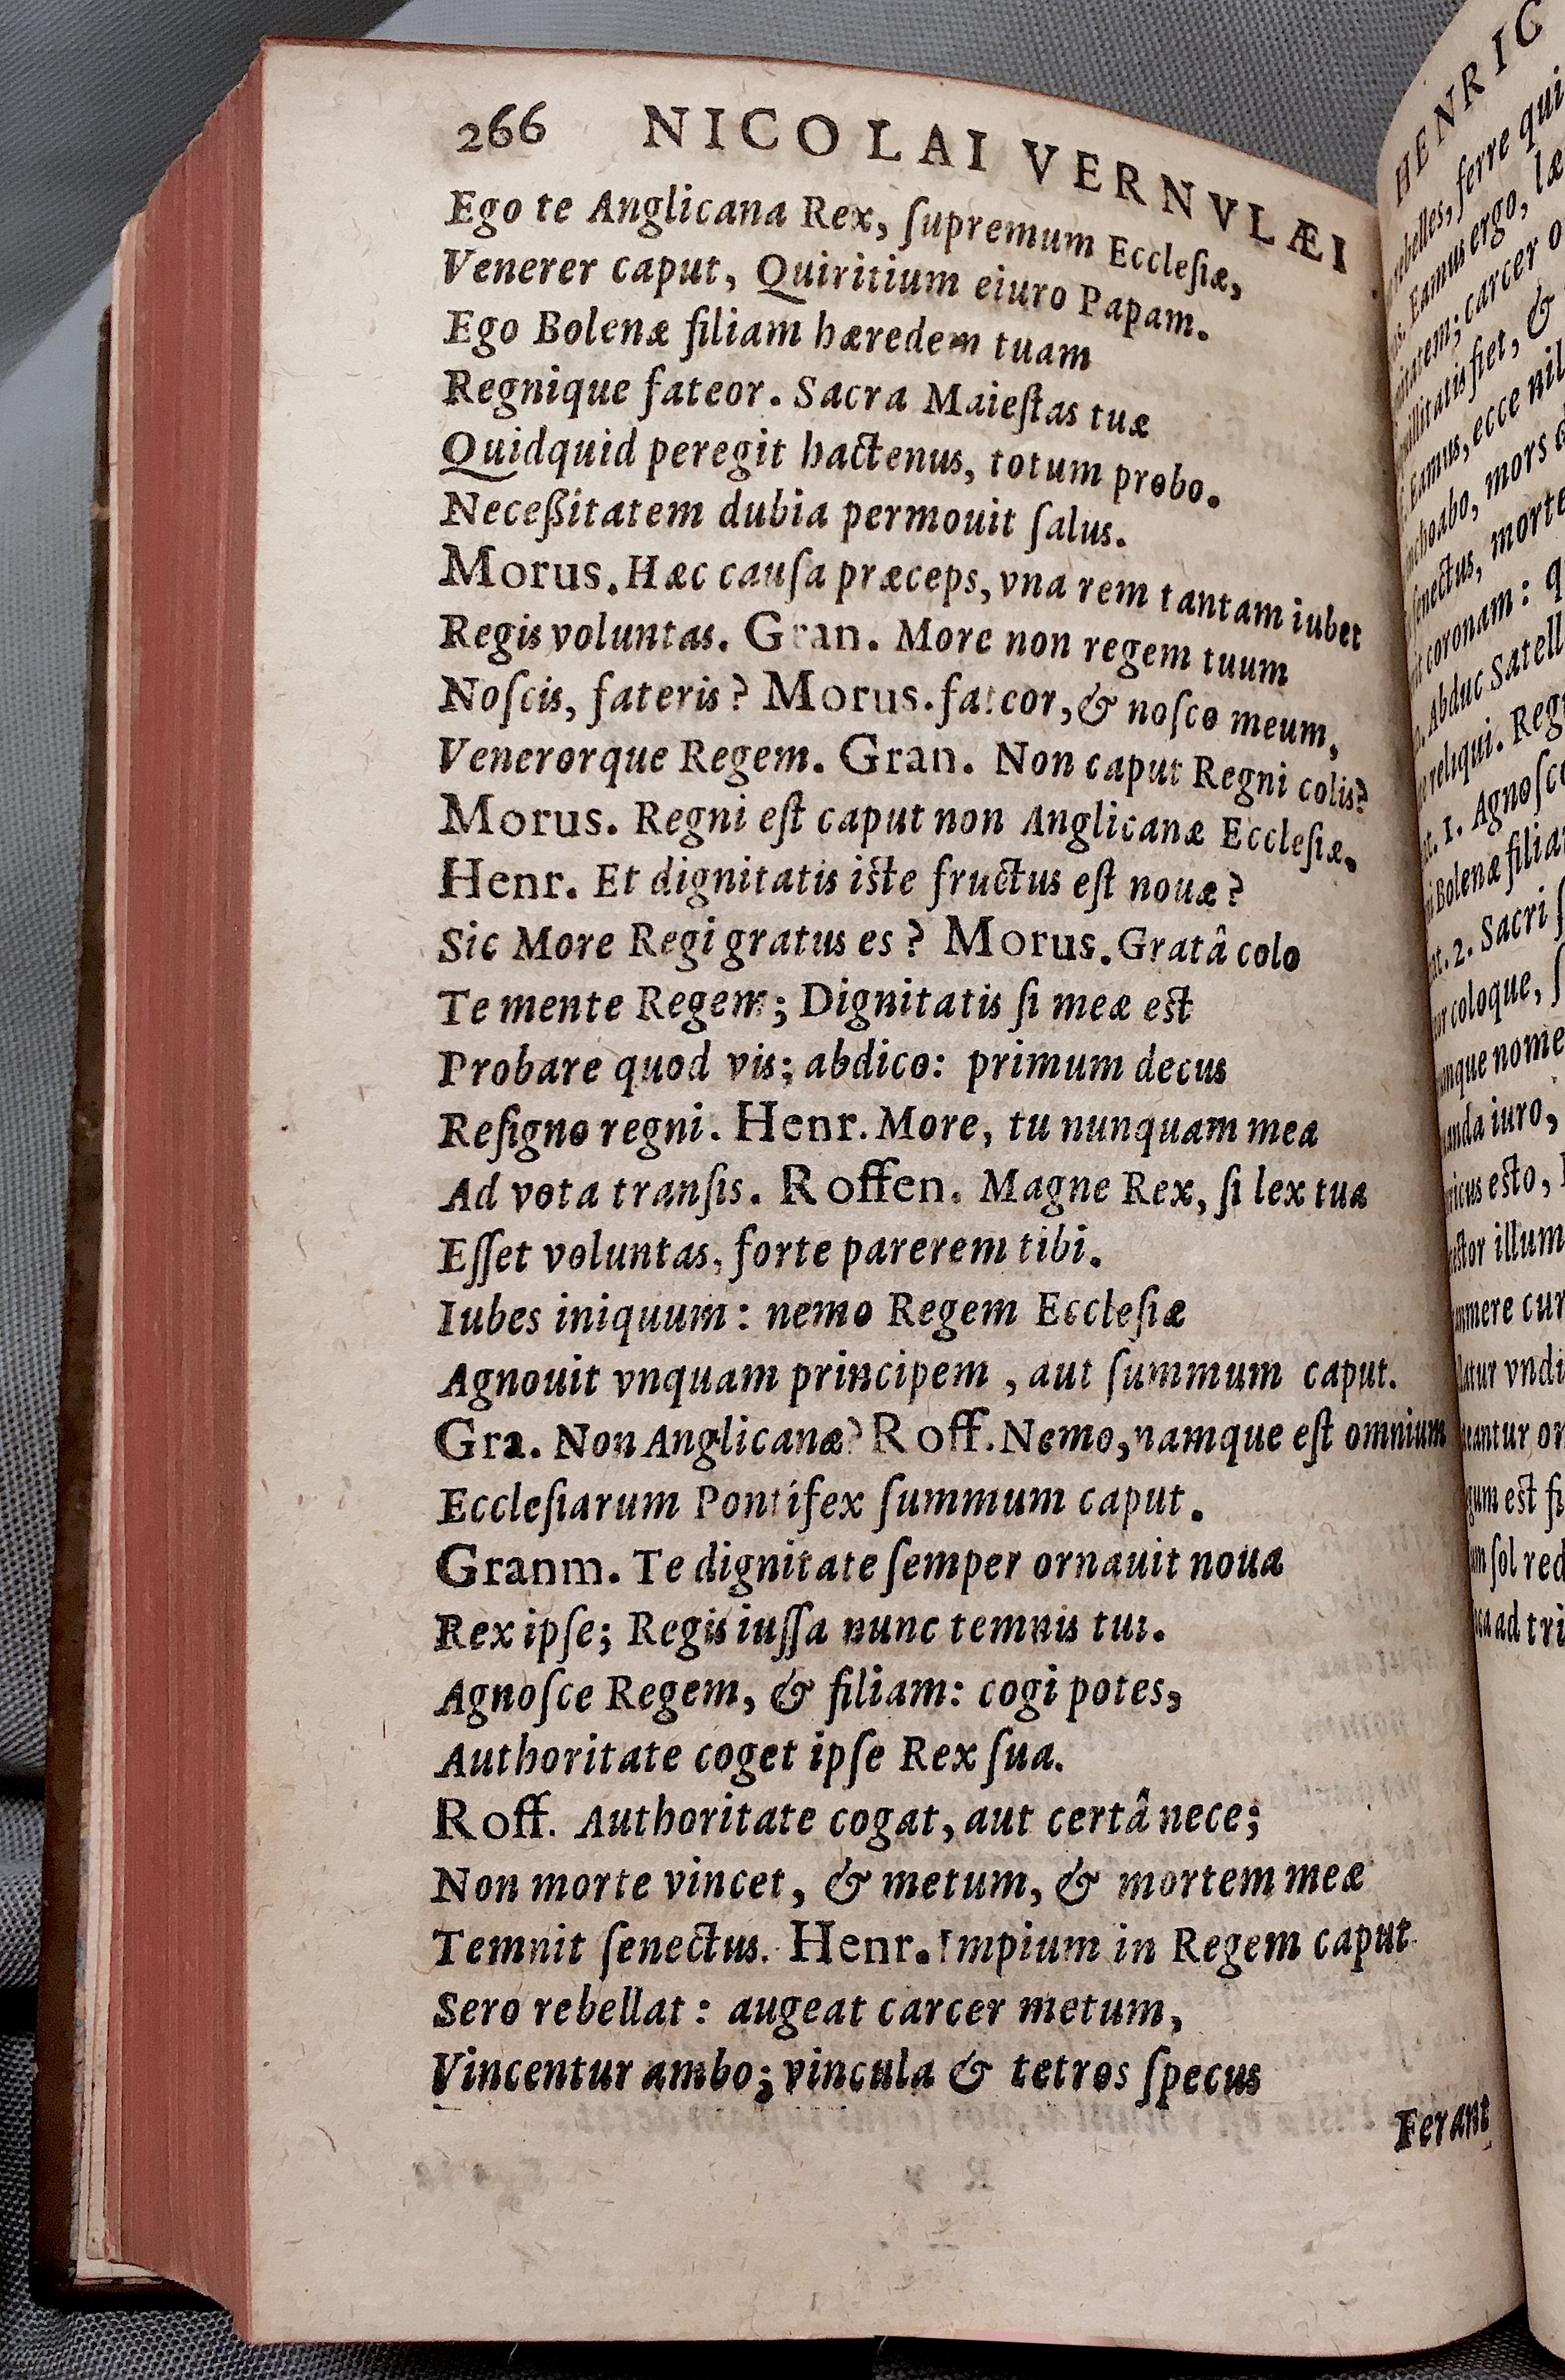 266 NICOLAI VERNVLÆI
Ego te Anglicana Rex, ſupremum Eccleſiæ,
Venerer caput, Quiritium eiuro Papam.
Ego Bolenæ filiam hæredem tuam
Regnique fateor. Sacra Maieſtas tuæ
Quidquid peregit hactenus, totum probo.
Neceßitatem dubia permouit ſalus.
Morus. Hæc cauſa præceps, vna rem tantam iubet
Regis voluntas. Gran. More non regem tuum
Noſcis, fateris? Morus. fateor, & noſco meum,
Venerorque Regem. Gran. Non caput Regni colis?
Morus. Regni eſt caput non Anglicanæ Eccleſiæ.
Henr. Et dignitatis iſte fructus eſt nouæ?
Sic More Regi gratus es? Morus. Gratâ colo
Te mente Regem; Dignitatis ſi meæ eſt
Probare quod vis; abdico: primum decus
Reſigno regni. Henr. More, tu nunquam mea
Ad vota tranſis. Roffen. Magne Rex, ſi lex tua
Eſſet voluntas, forte parerem tibi.
Iubes iniquum: nemo Regem Eccleſiæ
Agnouit vnquam principem, aut ſummum caput.
Gra. Non Anglicanæ? Roff. Nemo, namque eſt omnium
Eccleſiarum Pontifex ſummum caput.
Granm. Te dignitate ſemper ornauit noua
Rex ipſe; Regis iuſſa nunc temnis tui.
Agnoſce Regem, & filiam: cogi potes,
Authoritate coget ipſe Rex ſua.
Roff. Authoritate cogat, aut certâ nece;
Non morte vincet, & metum, & mortem meæ
Temnit ſenectus. Henr. Impium in Regem caput
Sero rebellat: augeat carcer metum,
Vincentur ambo; vincula & tetros ſpecus
Ferant
HENRIC
rebelles, ferre qui
Eamus ergo, læ
carcer o
fiet, &
Eamus, ecce nil
mors
ſenectus, morte
coronam: q
Abduc Satell
reliqui. Reg
1. Agnoſco
Bolenæ filia
2. Sacri
coloque,
nome
iuro,
eſto,
illum
cur
vndi
or
eſt fi
ſol red
ad tri